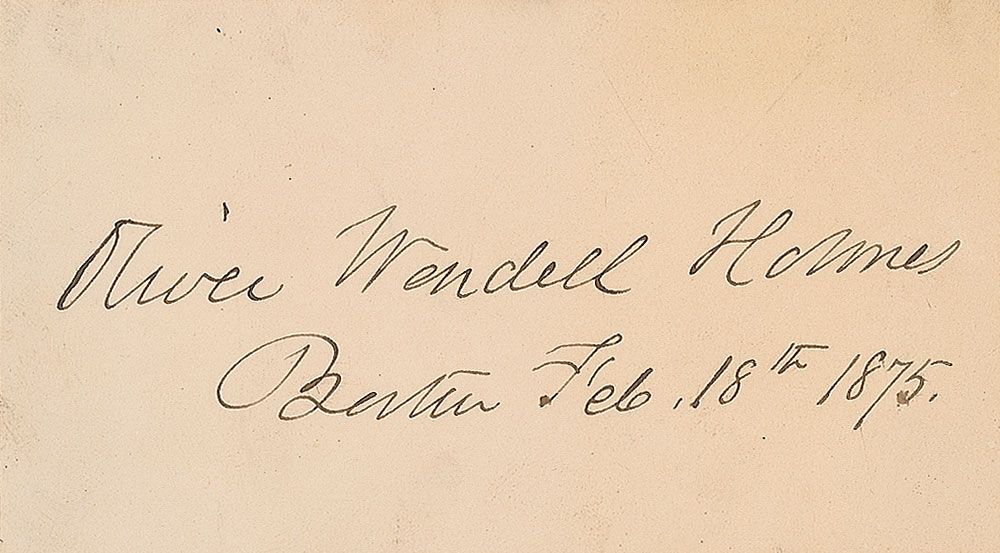 Oliver Wendell Holmes
Boston Feb. 18th 1875.